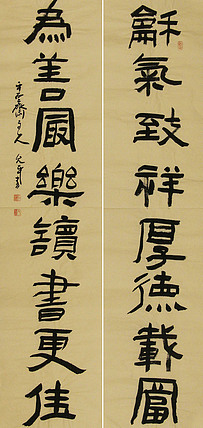 龢氣致祥厚德載富
為善最樂讀書更佳